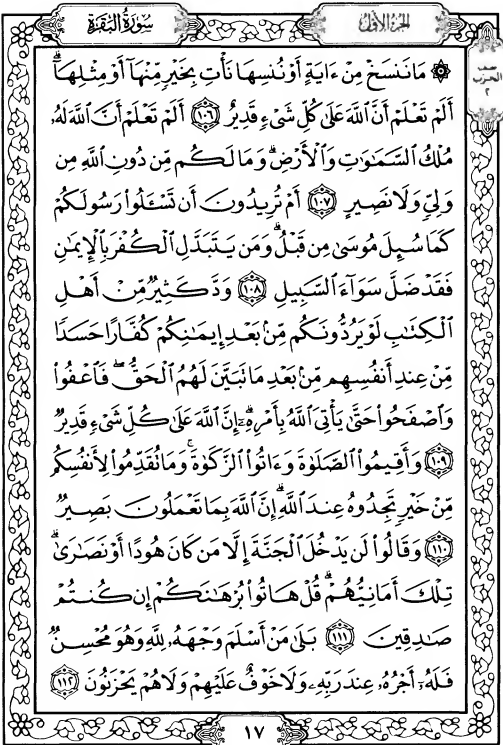 سورة البقرة
الجزء الأول
نصف
الحزب
٢
۞ مَا نَنسَخْ مِنْ ءَايَةٍ أَوْ نُنسِهَا نَأْتِ بِخَيْرٍ مِّنْهَآ أَوْ مِثْلِهَآۗ
أَلَمْ تَعْلَمْ أَنَّ ٱللَّهَ عَلَىٰ كُلِّ شَىْءٍ قَدِيرٌ ١٠٦ أَلَمْ تَعْلَمْ أَنَّ ٱللَّهَ لَهُۥ
مُلْكُ ٱلسَّمَـٰوَٰتِ وَٱلْأَرْضِۗ وَمَا لَكُم مِّن دُونِ ٱللَّهِ مِن
وَلِىٍّ وَلَا نَصِيرٍ ١٠٧ أَمْ تُرِيدُونَ أَن تَسْـَٔلُوا۟ رَسُولَكُمْ
كَمَا سُئِلَ مُوسَىٰ مِن قَبْلُۗ وَمَن يَتَبَدَّلِ ٱلْكُفْرَ بِٱلْإِيمَـٰنِ
فَقَدْ ضَلَّ سَوَآءَ ٱلسَّبِيلِ ١٠٨ وَدَّ كَثِيرٌ مِّنْ أَهْلِ
ٱلْكِتَـٰبِ لَوْ يَرُدُّونَكُم مِّنۢ بَعْدِ إِيمَـٰنِكُمْ كُفَّارًا حَسَدًا
مِّنْ عِندِ أَنفُسِهِم مِّنۢ بَعْدِ مَا تَبَيَّنَ لَهُمُ ٱلْحَقُّۖ فَٱعْفُوا۟
وَٱصْفَحُوا۟ حَتَّىٰ يَأْتِىَ ٱللَّهُ بِأَمْرِهِۦٓۗ إِنَّ ٱللَّهَ عَلَىٰ كُلِّ شَىْءٍ قَدِيرٌ
١٠٩ وَأَقِيمُوا۟ ٱلصَّلَوٰةَ وَءَاتُوا۟ ٱلزَّكَوٰةَۚ وَمَا تُقَدِّمُوا۟ لِأَنفُسِكُم
مِّنْ خَيْرٍ تَجِدُوهُ عِندَ ٱللَّهِۗ إِنَّ ٱللَّهَ بِمَا تَعْمَلُونَ بَصِيرٌ
١١٠ وَقَالُوا۟ لَن يَدْخُلَ ٱلْجَنَّةَ إِلَّا مَن كَانَ هُودًا أَوْ نَصَـٰرَىٰۗ
تِلْكَ أَمَانِيُّهُمْۗ قُلْ هَاتُوا۟ بُرْهَـٰنَكُمْ إِن كُنتُمْ
صَـٰدِقِينَ ١١١ بَلَىٰ مَنْ أَسْلَمَ وَجْهَهُۥ لِلَّهِ وَهُوَ مُحْسِنٌ
فَلَهُۥٓ أَجْرُهُۥ عِندَ رَبِّهِۦ وَلَا خَوْفٌ عَلَيْهِمْ وَلَا هُمْ يَحْزَنُونَ ١١٢
١٧